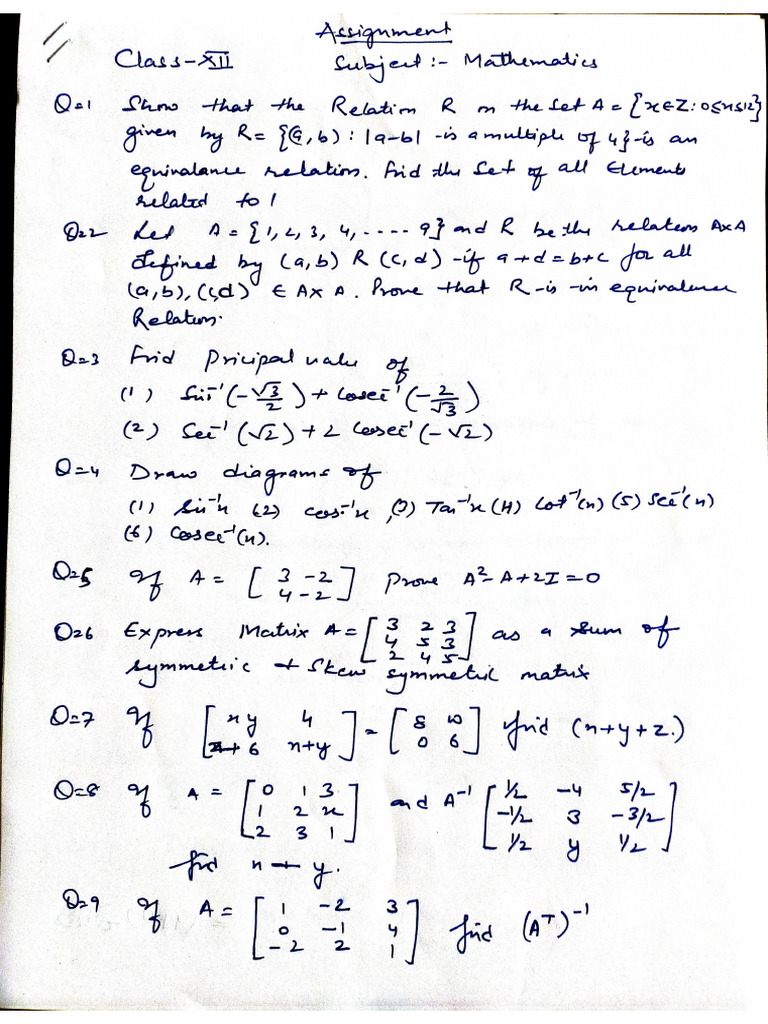 Assignment
Class-XII Subject:- Mathematics
Q=1 Show that the Relation R on the Set A = {x∈Z: 0≤x≤12}
given by R = {(a, b) : |a-b| -is a multiple of 4}-is an
equivalance relation. Find the Set of all Elements
related to 1
Q=2 Let A = {1, 2, 3, 4, ---- 9} and R be the relation AxA
defined by (a, b) R (c, d) -if a+d = b+c for all
(a, b), (c,d) ∈ A x A. Prove that R-is -in equivalence
Relation.
Q=3 Find Pricipal value of
(1) Sin⁻¹(-√3/2) + Cosec⁻¹(-2/√3)
(2) Sec⁻¹(√2) + 2 Cosec⁻¹(-√2)
Q=4 Draw diagrams of
(1) Sin⁻¹x (2) cos⁻¹x, (3) Tan⁻¹x (4) Cot⁻¹(x) (5) Sec⁻¹(x)
(6) Cosec⁻¹(x).
Q=5 If A = [3 -2
4 -2] Prove A²-A+2I=0
Q=6 Express Matrix A = [3 2 3
4 5 3
2 4 5] as a sum of
symmetric + Skew symmetric matrix
Q=7 If [xy 4
z+6 x+y] = [8 w
0 6] find (x+y+z.)
Q=8 If A = [0 1 3
1 2 x
2 3 1] and A⁻¹ [1/2 -4 5/2
-1/2 3 -3/2
1/2 y 1/2]
find x + y.
Q=9 If A = [1 -2 3
0 -1 4
-2 2 1] find (Aᵀ)⁻¹